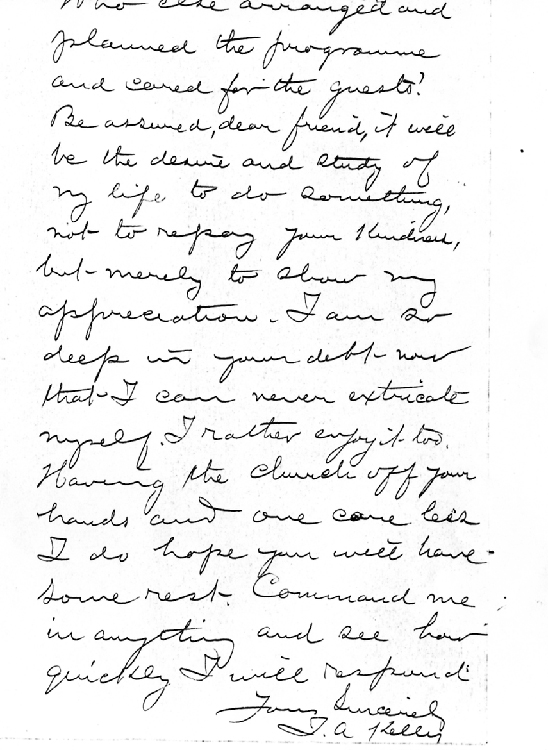 Who else arranged and
planned the programme
and cared for the guests?
Be assured, dear friend, it will
be the desire and study of
my life to do something,
not to repay your kindness,
but merely to show my
appreciation. I am so
deep in your debt now
that I can never extricate
myself. I rather enjoy it too.
Having the church off your
hands and one care less
I do hope you will have
some rest. Command me
in anything and see how
quickly I will respond
Yours Sincerely
T. A. Kelly